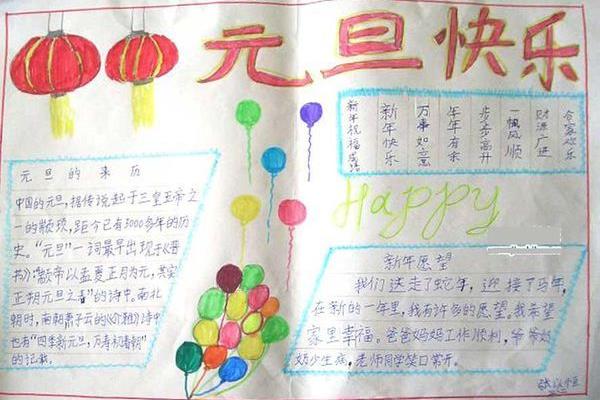 元旦快乐
新年祝福成语
新年快乐
万事如意
年年有余
步步高升
一帆风顺
财源广进
合家欢乐
元旦的来历
中国的元旦，据传说起于三皇五帝之
一的颛顼，距今已有3000多年的历
史。“元旦”一词最早出现于《晋
书》：“颛帝以孟夏正月为元，其实
正朔元旦之春”的诗中。南北
朝时，南朝萧子云的《介雅》诗中
也有“四季新元旦，万寿初春朝”
的记载。
Happy
新年愿望
我们送走了蛇年，迎接了马年，
在新的一年里，我有许多的愿望。我希望
家里幸福。爸爸妈妈工作顺利，爷爷奶
奶少生病，老师同学笑口常开。